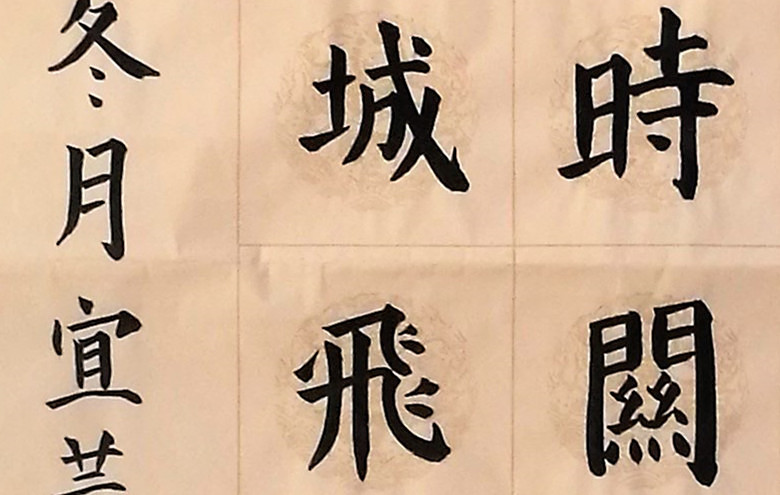 時關
城飛
冬月宜